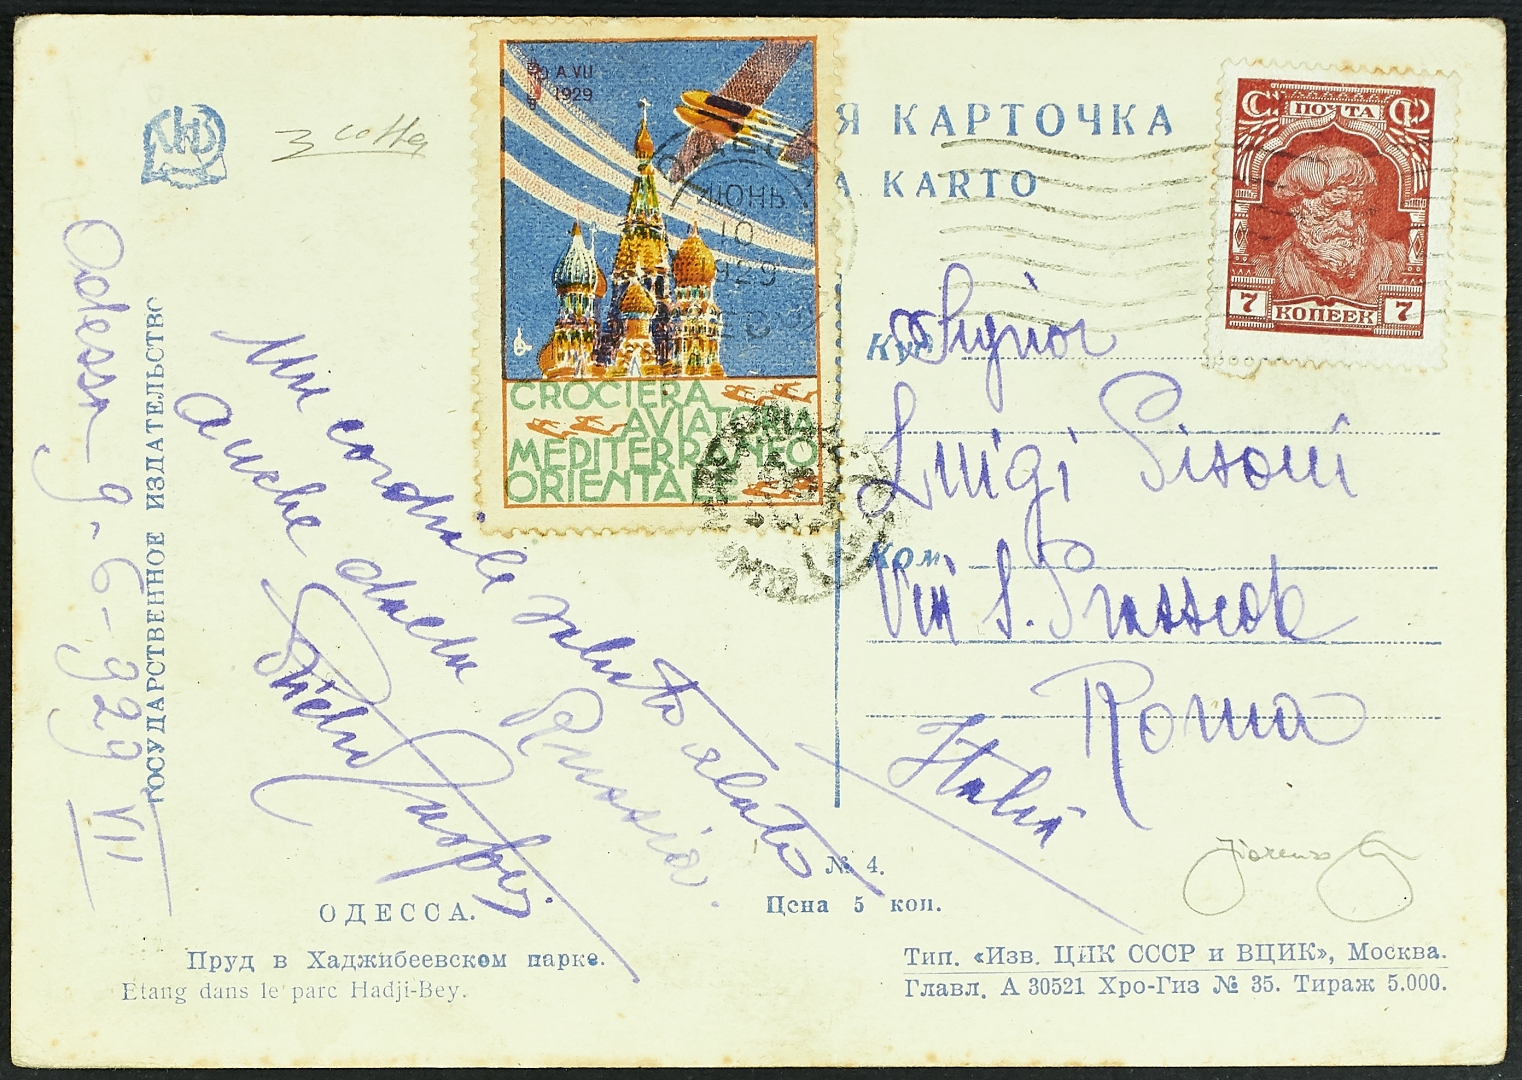 Я КАРТОЧКА
А KARTO
A.VII
1929
ИЮНЬ
10
929
CROCIERA
AVIATORIA
MEDITERRANEO
ORIENTALE
СССР
ПОЧТА
7 КОПЕЕК 7
Signor
Luigi Pisoni
Via S. Prassede
Roma
Italia
Odessa 9-6-929 VII
ГОСУДАРСТВЕННОЕ ИЗДАТЕЛЬСТВО
Un cordiale saluto alato
anche dalla Russia.
ОДЕССА.
Пруд в Хаджибеевском парке.
Etang dans le parc Hadji-Bey.
№ 4.
Цена 5 коп.
Fiorenzo
Тип. «Изв. ЦИК СССР и ВЦИК», Москва.
Главл. А 30521 Хро-Гиз № 35. Тираж 5.000.